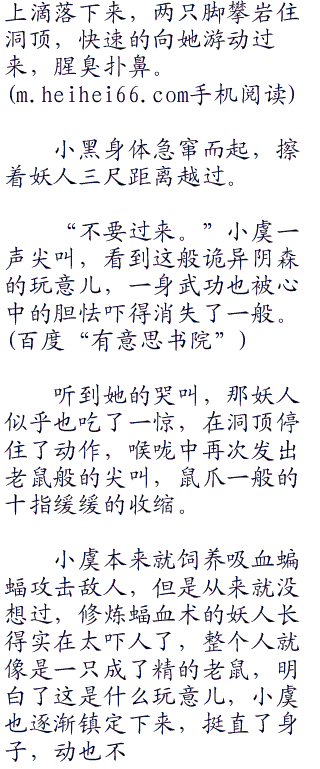 上滴落下来，两只脚攀岩住
洞顶，快速的向她游动过
来，腥臭扑鼻。
(m.heihei66.com手机阅读)
小黑身体急窜而起，擦
着妖人三尺距离越过。
“不要过来。”小虞一
声尖叫，看到这般诡异阴森
的玩意儿，一身武功也被心
中的胆怯吓得消失了一般。
(百度“有意思书院”)
听到她的哭叫，那妖人
似乎也吃了一惊，在洞顶停
住了动作，喉咙中再次发出
老鼠般的尖叫，鼠爪一般的
十指缓缓的收缩。
小虞本来就饲养吸血蝙
蝠攻击敌人，但是从来就没
想过，修炼蝠血术的妖人长
得实在太吓人了，整个人就
像是一只成了精的老鼠，明
白了这是什么玩意儿，小虞
也逐渐镇定下来，挺直了身
子，动也不